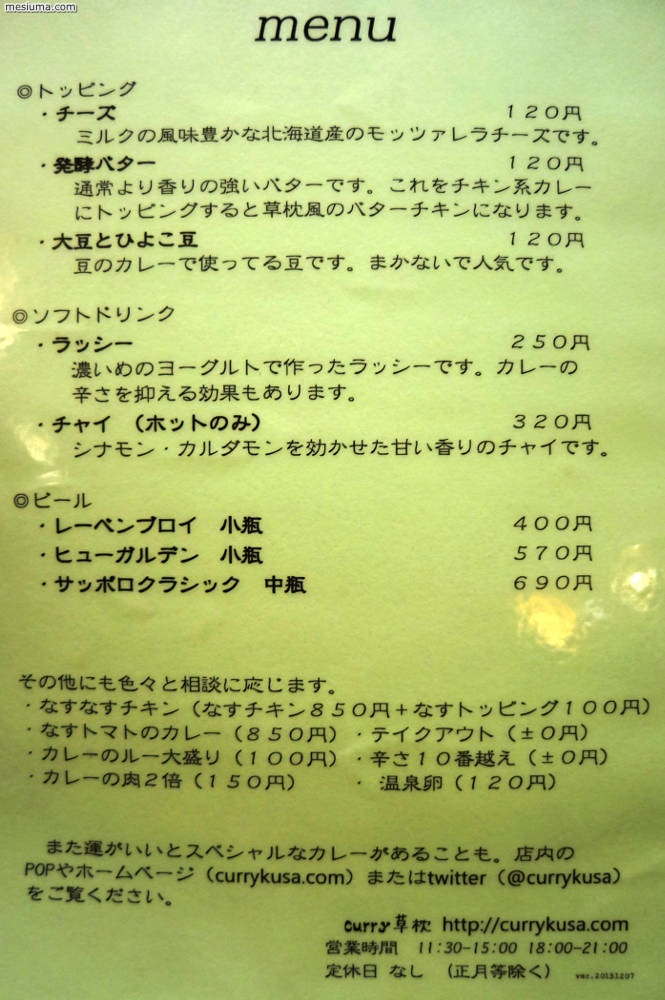 mesiuma.com
menu
◎トッピング
・チーズ 120円
ミルクの風味豊かな北海道産のモッツァレラチーズです。
・発酵バター 120円
通常より香りの強いバターです。これをチキン系カレー
にトッピングすると草枕風のバターチキンになります。
・大豆とひよこ豆 120円
豆のカレーで使ってる豆です。まかないで人気です。
◎ソフトドリンク
・ラッシー 250円
濃いめのヨーグルトで作ったラッシーです。カレーの
辛さを抑える効果もあります。
・チャイ （ホットのみ） 320円
シナモン・カルダモンを効かせた甘い香りのチャイです。
◎ビール
・レーベンブロイ 小瓶 400円
・ヒューガルデン 小瓶 570円
・サッポロクラシック 中瓶 690円
その他にも色々と相談に応じます。
・なすなすチキン（なすチキン850円＋なすトッピング100円）
・なすトマトのカレー（850円）・テイクアウト（±0円）
・カレーのルー大盛り（100円）・辛さ10番越え（±0円）
・カレーの肉2倍（150円） ・ 温泉卵（120円）
また運がいいとスペシャルなカレーがあることも。店内の
POPやホームページ（currykusa.com）またはtwitter（@currykusa）
をご覧ください。
curry草枕 http://currykusa.com
営業時間 11:30-15:00 18:00-21:00
定休日 なし （正月等除く） ver.20151207